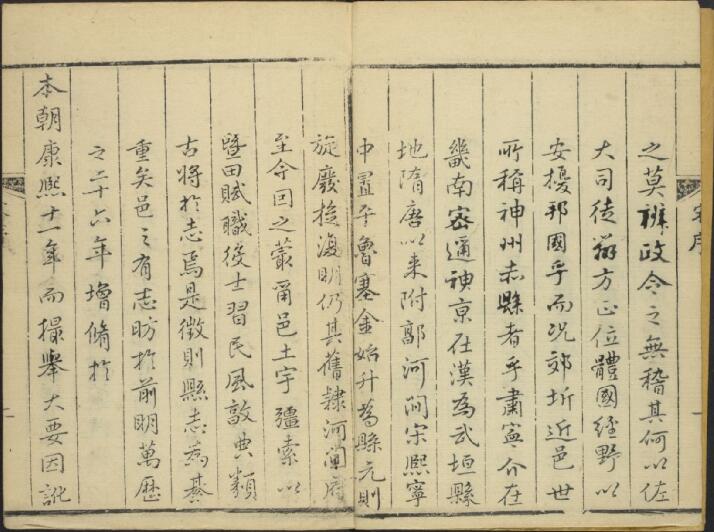 之莫裤政令之無稽其何以佐
大司徒辨方正位體國經野以
安擾邦國乎而况郊圻近邑世
所稱神州赤縣者乎肅寧介在
畿南密邇神京在漢為武垣縣
地隋唐以来附郭河間宋熙寧
中置平魯塞金始升為縣元則
旋廢旋復明仍其舊隸河間府
至今因之蕞爾邑土宇疆索以
暨田賦職役士習民風敦典類
古將扵志焉是徵則縣志為綦
重矣邑之有志昉扵前明萬歷
之二十六年增脩扵
本朝康熙十一年而撮舉大要因訛
序
一